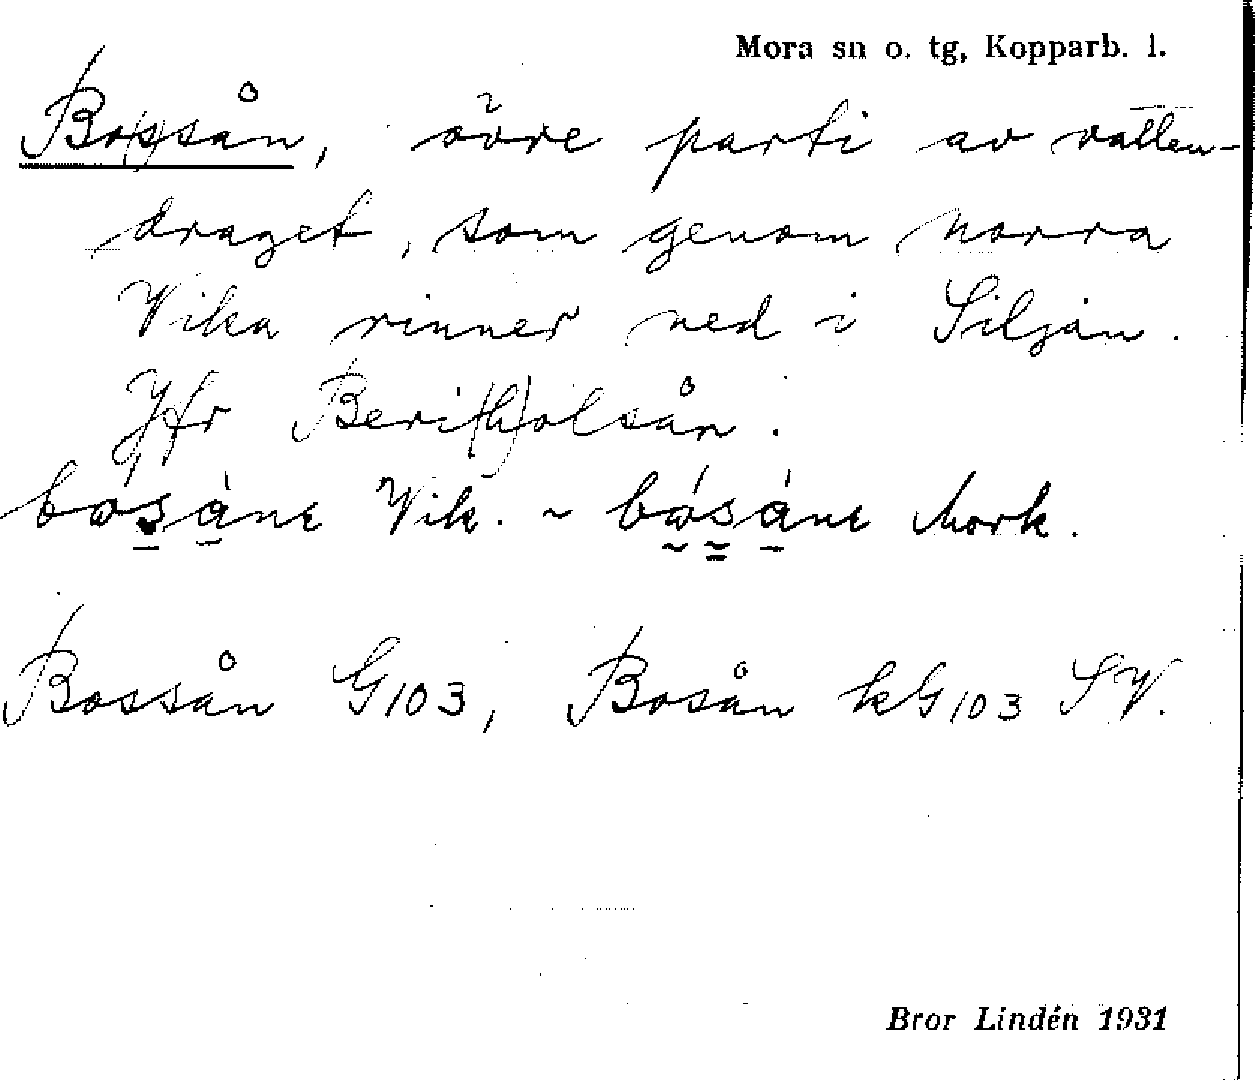 Mora sn o. tg, Kopparb. l.
Bo(s)sån, övre parti av vatten-
draget, som genom norra
Vika rinner ned i Siljan.
Jfr Berit(h)olsån.
Vik. ~ Mork.
Bossån G103, Bosån kG103 SV.
Bror Lindén 1931